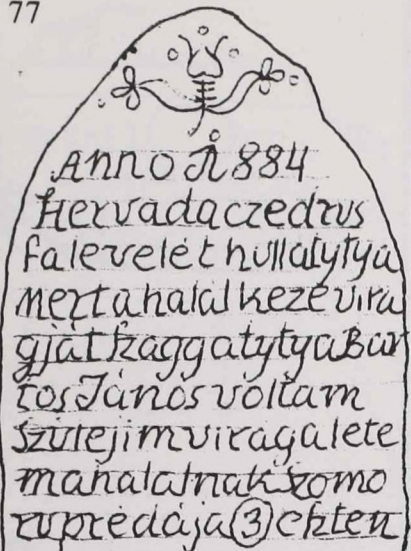 77
Anno 1884
Hervad a czedrus
fa levelet hullatytya
mert a halal keze vira
gját szaggatytya Bar
tos János voltam
szulejim viraga lete
ma halalnak szomo
ru prédája 3 eszten